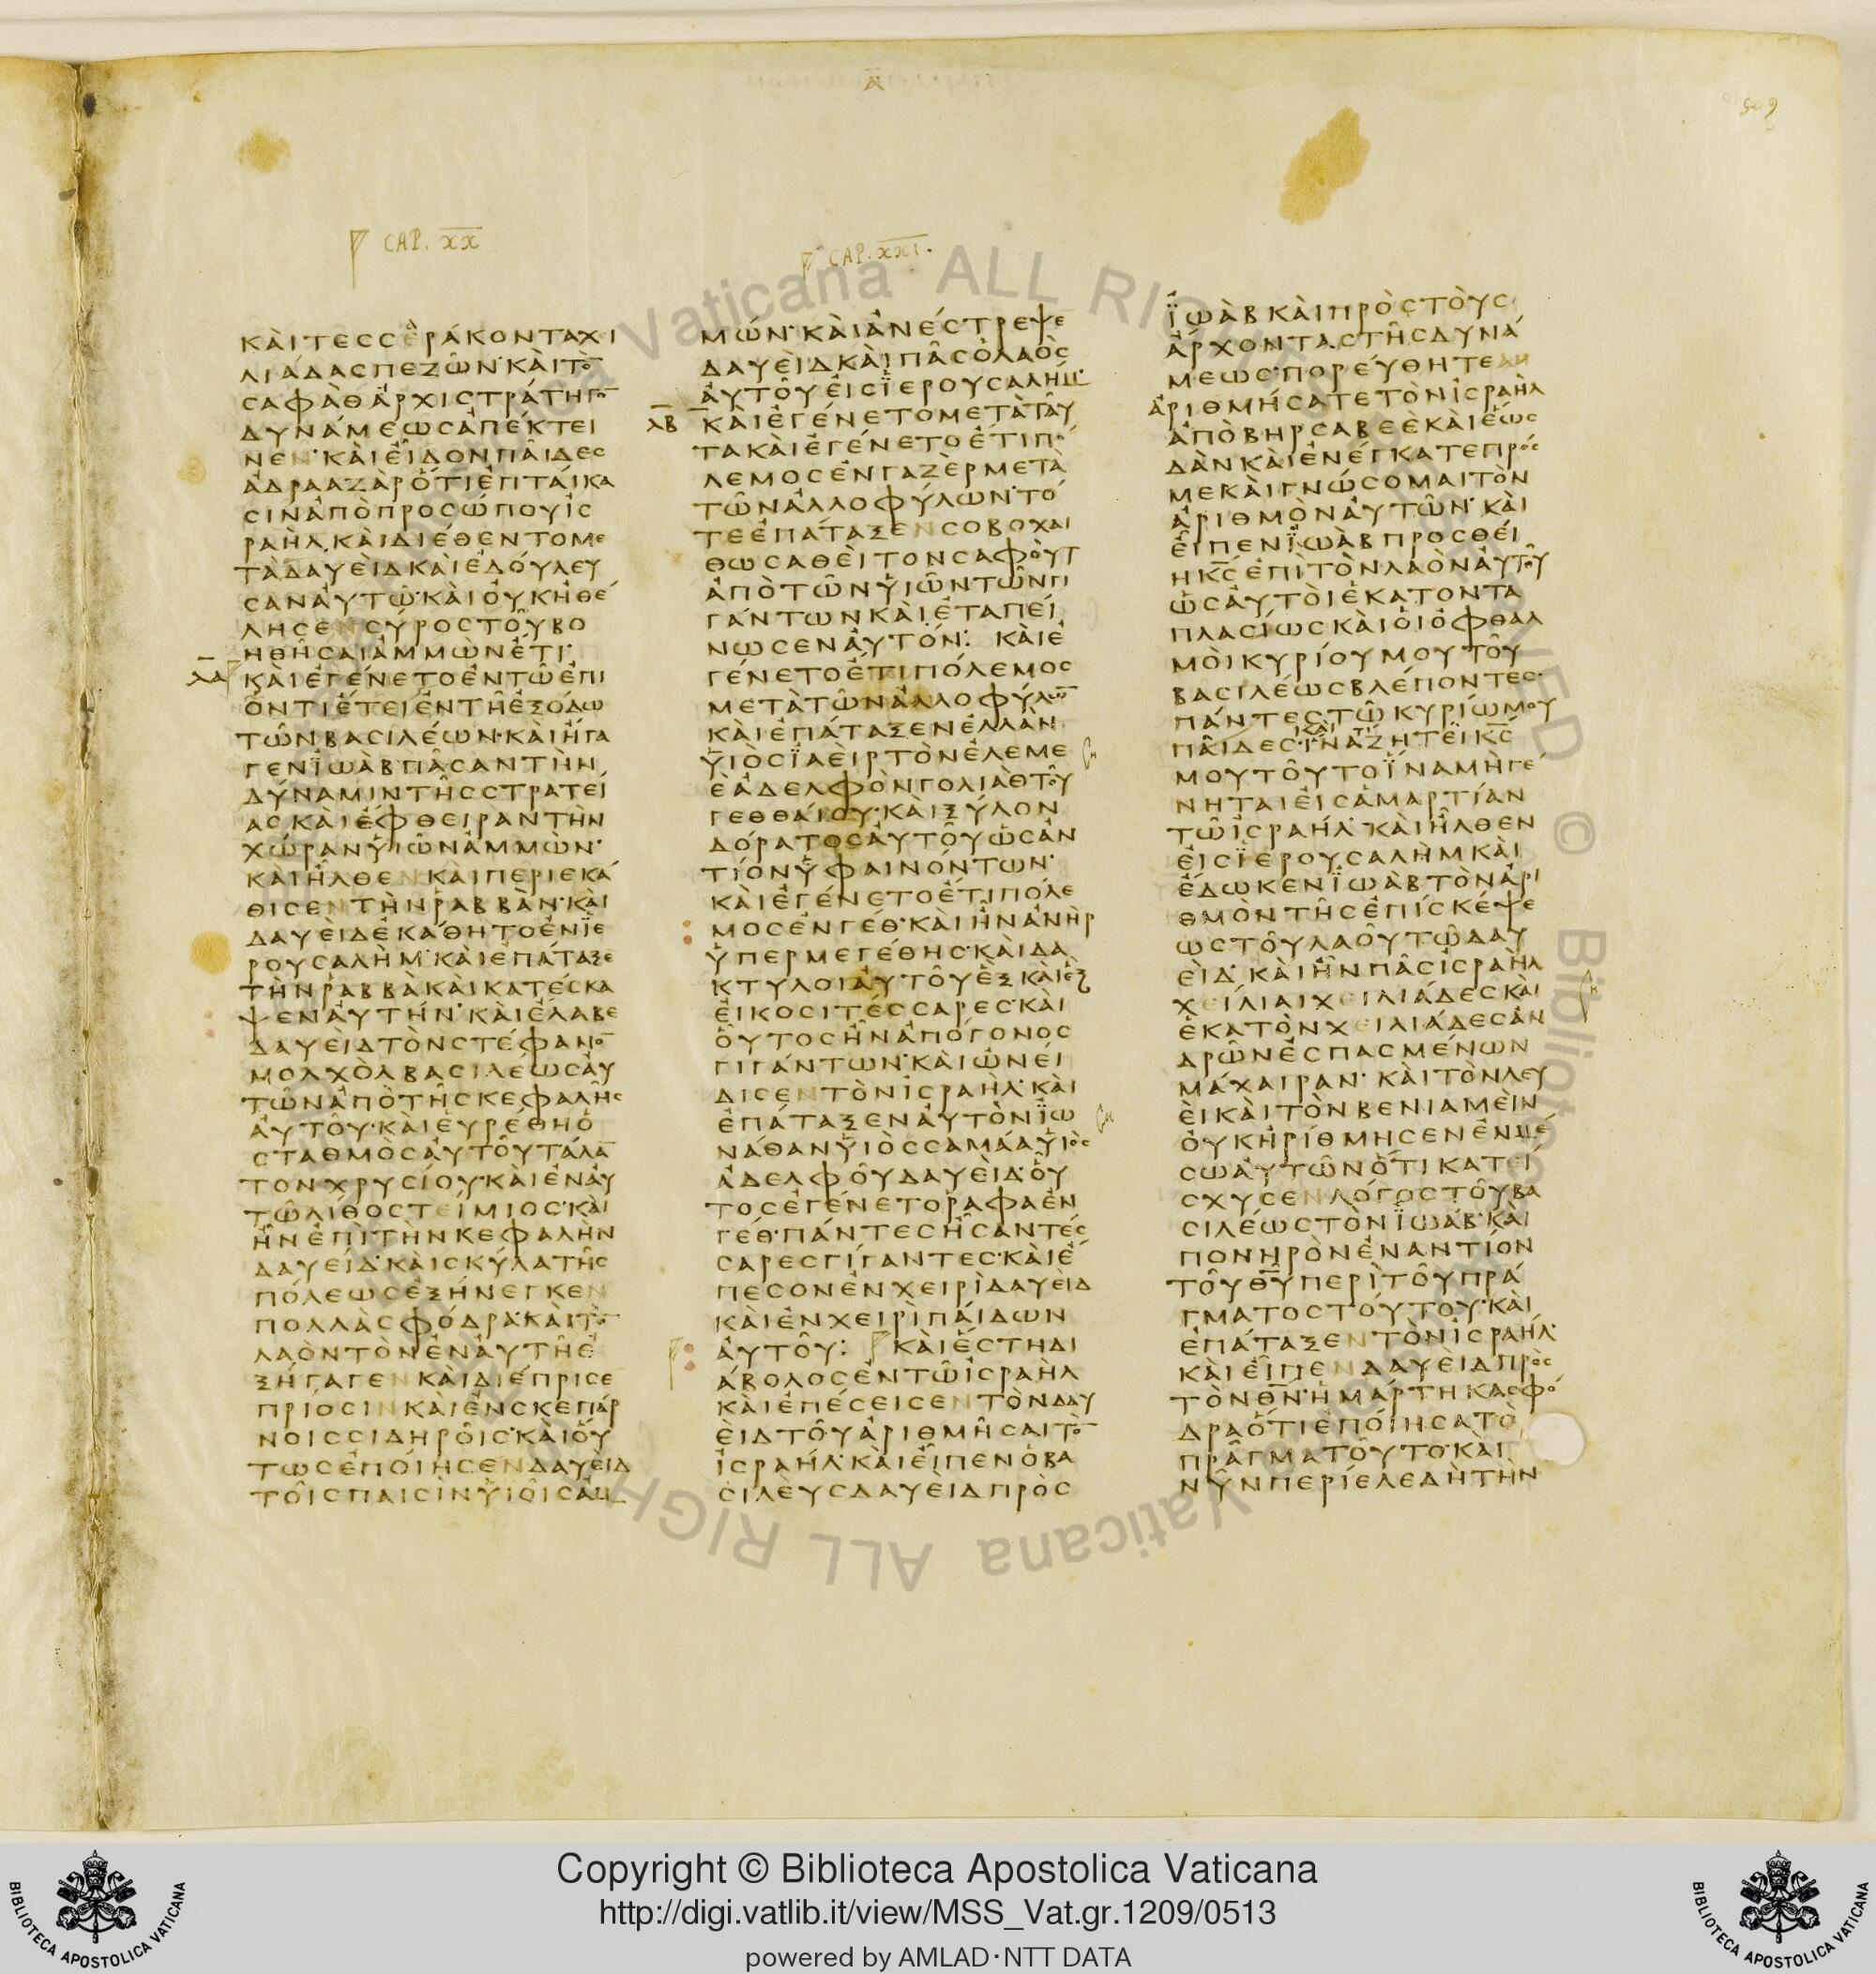 Α
509
CAP. XX
ΚΑΙΤΕΣΣΕΡΑΚΟΝΤΑΧΕΙ
ΛΙΑΔΑΣΠΕΖΩΝ·ΚΑΙΤΟ̅
ΣΑΦΑΘΑΡΧΙΣΤΡΑΤΗΓΟ̅
ΔΥΝΑΜΕΩΣΑΠΕΚΤΕΙ
ΝΕΝ·ΚΑΙΕΙΔΟΝΠΑΙΔΕΣ
ΑΔΡΑΑΖΑΡΟΤΙΕΠΤΑΙΚΑ
ΣΙΝΑΠΟΠΡΟΣΩΠΟΥΙΣ
ΡΑΗΛ·ΚΑΙΔΙΕΘΕΝΤΟΜΕ
ΤΑΔΑΥΕΙΔΚΑΙΕΔΟΥΛΕΥ
ΣΑΝΑΥΤΩ·ΚΑΙΟΥΚΗΘΕ
ΛΗΣΕΝΣΥΡΟΣΤΟΥΒΟ
ΗΘΗΣΑΙΑΜΜΩΝΕΤΙ·
Λ̅Α̅ ΚΑΙΕΓΕΝΕΤΟΕΝΤΩΕΠΙ
ΟΝΤΙΕΤΕΙΕΝΤΗΕΞΟΔΩ
ΤΩΝΒΑΣΙΛΕΩΝ·ΚΑΙΗΓΑ
ΓΕΝΪΩΑΒΠΑΣΑΝΤΗΝ
ΔΥΝΑΜΙΝΤΗΣΣΤΡΑΤΕΙ
ΑΣΚΑΙΕΦΘΕΙΡΑΝΤΗΝ
ΧΩΡΑΝΥΙΩΝΑΜΜΩΝ·
ΚΑΙΗΛΘΕΝΚΑΙΠΕΡΙΕΚΑ
ΘΙΣΕΝΤΗΝΡΑΒΒΑΝ·ΚΑΙ
ΔΑΥΕΙΔΕΚΑΘΗΤΟΕΝΪΕ
ΡΟΥΣΑΛΗΜ·ΚΑΙΕΠΑΤΑΞΕ
ΤΗΝΡΑΒΒΑΚΑΙΚΑΤΕΣΚΑ
ΨΕΝΑΥΤΗΝ·ΚΑΙΕΛΑΒΕ
ΔΑΥΕΙΔΤΟΝΣΤΕΦΑΝΟ̅
ΜΟΛΧΟΛΒΑΣΙΛΕΩΣΑΥ
ΤΩΝΑΠΟΤΗΣΚΕΦΑΛΗΣ
ΑΥΤΟΥ·ΚΑΙΕΥΡΕΘΗΟ
ΣΤΑΘΜΟΣΑΥΤΟΥΤΑΛΑ̅
ΤΟΝΧΡΥΣΙΟΥ·ΚΑΙΕΝΑΥ
ΤΩΛΙΘΟΣΤΕΙΜΙΟΣ·ΚΑΙ
ΗΝΕΠΙΤΗΝΚΕΦΑΛΗΝ
ΔΑΥΕΙΔ·ΚΑΙΣΚΥΛΑΤΗΣ
ΠΟΛΕΩΣΕΞΗΝΕΓΚΕΝ
ΠΟΛΛΑΣΦΟΔΡΑ·ΚΑΙΤΟ̅
ΛΑΟΝΤΟΝΕΝΑΥΤΗΕ
ΞΗΓΑΓΕΝΚΑΙΔΙΕΠΡΙΣΕ
ΠΡΙΟΣΙΝΚΑΙΕΝΣΚΕΠΑΡ
ΝΟΙΣΣΙΔΗΡΟΙΣ·ΚΑΙΟΥ
ΤΩΣΕΠΟΙΗΣΕΝΔΑΥΕΙΔ
ΤΟΙΣΠΑΙΣΙΝΥΙΟΙΣΑΜ
CAP. XXI.
ΜΩΝ·ΚΑΙΑΝΕΣΤΡΕΨΕ
ΔΑΥΕΙΔΚΑΙΠΑΣΟΛΑΟΣ
ΑΥΤΟΥΕΙΣΪΕΡΟΥΣΑΛΗΜ·
Λ̅Β̅ ΚΑΙΕΓΕΝΕΤΟΜΕΤΑΤΑΥ
ΤΑΚΑΙΕΓΕΝΕΤΟΕΤΙΠΟ
ΛΕΜΟΣΕΝΓΑΖΕΡΜΕΤΑ
ΤΩΝΑΛΛΟΦΥΛΩΝ·ΤΟ
ΤΕΕΠΑΤΑΞΕΝΣΟΒΟΧΑΙ
ΘΩΣΑΘΕΙΤΟΝΣΑΦΟΥΤ
ΑΠΟΤΩΝΥΙΩΝΤΩΝΓΙ
ΓΑΝΤΩΝΚΑΙΕΤΑΠΕΙ
ΝΩΣΕΝΑΥΤΟΝ: ΚΑΙΕ
ΓΕΝΕΤΟΕΤΙΠΟΛΕΜΟΣ
ΜΕΤΑΤΩΝΑΛΛΟΦΥΛΩ̅
ΚΑΙΕΠΑΤΑΞΕΝΕΛΛΑΝ
ΥΙΟΣΪΑΕΙΡΤΟΝΕΛΕΜΕ
ΕΑΔΕΛΦΟΝΓΟΛΙΑΘΤΟΥ
ΓΕΘΘΑΙΟΥ·ΚΑΙΞΥΛΟΝ
ΔΟΡΑΤΟΣΑΥΤΟΥΩΣΑΝ
ΤΙΟΝΥΦΑΙΝΟΝΤΩΝ·
ΚΑΙΕΓΕΝΕΤΟΕΤΙΠΟΛΕ
ΜΟΣΕΝΓΕΘ·ΚΑΙΗΝΑΝΗΡ
ΥΠΕΡΜΕΓΕΘΗΣ·ΚΑΙΔΑ
ΚΤΥΛΟΙΑΥΤΟΥΕΞΚΑΙΕΞ
ΕΙΚΟΣΙΤΕΣΣΑΡΕΣ·ΚΑΙ
ΟΥΤΟΣΗΝΑΠΟΓΟΝΟΣ
ΓΙΓΑΝΤΩΝ·ΚΑΙΩΝΕΙ
ΔΙΣΕΝΤΟΝΙΣΡΑΗΛ·ΚΑΙ
ΕΠΑΤΑΞΕΝΑΥΤΟΝΪΩ
ΝΑΘΑΝΥΙΟΣΣΑΜΑΑΥΙΟΣ
ΑΔΕΛΦΟΥΔΑΥΕΙΔ·ΟΥ
ΤΟΣΕΓΕΝΕΤΟΡΑΦΑΕΝ
ΓΕΘ·ΠΑΝΤΕΣΗΣΑΝΤΕΣ
ΣΑΡΕΣΓΙΓΑΝΤΕΣ·ΚΑΙΕ
ΠΕΣΟΝΕΝΧΕΙΡΙΔΑΥΕΙΔ
ΚΑΙΕΝΧΕΙΡΙΠΑΙΔΩΝ
ΑΥΤΟΥ: ΚΑΙΕΣΤΗΔΙ
ΑΒΟΛΟΣΕΝΤΩΙΣΡΑΗΛ
ΚΑΙΕΠΕΣΕΙΣΕΝΤΟΝΔΑΥ
ΕΙΔΤΟΥΑΡΙΘΜΗΣΑΙΤΟ̅
ΙΣΡΑΗΛ·ΚΑΙΕΙΠΕΝΟΒΑ
ΣΙΛΕΥΣΔΑΥΕΙΔΠΡΟΣ
ΪΩΑΒΚΑΙΠΡΟΣΤΟΥΣ
ΑΡΧΟΝΤΑΣΤΗΣΔΥΝΑ
ΜΕΩΣ·ΠΟΡΕΥΘΗΤΕ
ΑΡΙΘΜΗΣΑΤΕΤΟΝΙΣΡΑΗΛ
ΑΠΟΒΗΡΣΑΒΕΕΚΑΙΕΩΣ
ΔΑΝΚΑΙΕΝΕΓΚΑΤΕΠΡΟΣ
ΜΕΚΑΙΓΝΩΣΟΜΑΙΤΟΝ
ΑΡΙΘΜΟΝΑΥΤΩΝ·ΚΑΙ
ΕΙΠΕΝΪΩΑΒΠΡΟΣΘΕΙ
ΗΚ̅Σ̅ΕΠΙΤΟΝΛΑΟΝΑΥΤΟΥ
ΩΣΑΥΤΟΙΕΚΑΤΟΝΤΑ
ΠΛΑΣΙΩΣΚΑΙΟΙΟΦΘΑΛ
ΜΟΙΚΥΡΙΟΥΜΟΥΤΟΥ
ΒΑΣΙΛΕΩΣΒΛΕΠΟΝΤΕΣ·
ΠΑΝΤΕΣΤΩΚΥΡΙΩΜΟΥ
ΠΑΙΔΕΣ·ΙΝΑΖΗΤΕΙΚ̅Σ̅
ΜΟΥΤΟΥΤΟΪΝΑΜΗΓΕ
ΝΗΤΑΙΕΙΣΑΜΑΡΤΙΑΝ
ΤΩΙΣΡΑΗΛ·ΚΑΙΗΛΘΕΝ
ΕΙΣΪΕΡΟΥΣΑΛΗΜΚΑΙ
ΕΔΩΚΕΝΪΩΑΒΤΟΝΑΡΙ
ΘΜΟΝΤΗΣΕΠΙΣΚΕΨΕ
ΩΣΤΟΥΛΑΟΥΤΩΔΑΥ
ΕΙΔ·ΚΑΙΗΝΠΑΣΙΣΡΑΗΛ
ΧΕΙΛΙΑΙΧΕΙΛΙΑΔΕΣΚΑΙ
ΕΚΑΤΟΝΧΕΙΛΙΑΔΕΣΑΝ
ΔΡΩΝΕΣΠΑΣΜΕΝΩΝ
ΜΑΧΑΙΡΑΝ·ΚΑΙΤΟΝΛΕΥ
ΕΙΚΑΙΤΟΝΒΕΝΙΑΜΕΙΝ
ΟΥΚΗΡΙΘΜΗΣΕΝΕΝΜΕ
ΣΩΑΥΤΩΝΟΤΙΚΑΤΕΙ
ΣΧΥΣΕΝΛΟΓΟΣΤΟΥΒΑ
ΣΙΛΕΩΣΤΟΝΪΩΑΒ·ΚΑΙ
ΠΟΝΗΡΟΝΕΝΑΝΤΙΟΝ
ΤΟΥΘ̅Υ̅ΠΕΡΙΤΟΥΠΡΑ
ΓΜΑΤΟΣΤΟΥΤΟΥ·ΚΑΙ
ΕΠΑΤΑΞΕΝΤΟΝΙΣΡΑΗΛ·
ΚΑΙΕΙΠΕΝΔΑΥΕΙΔΠΡΟΣ
ΤΟΝΘ̅Ν̅·ΗΜΑΡΤΗΚΑΣΦΟ
ΔΡΑΟΤΙΕΠΟΙΗΣΑΤΟ
ΠΡΑΓΜΑΤΟΥΤΟ·ΚΑΙ
ΝΥΝΠΕΡΙΕΛΕΔΗΤΗΝ
Vaticana ALL RIGHTS RESERVED © Biblioteca Apostolica Vaticana ALL RIGHTS
Copyright © Biblioteca Apostolica Vaticana
http://digi.vatlib.it/view/MSS_Vat.gr.1209/0513
powered by AMLAD·NTT DATA
BIBLIOTECA APOSTOLICA VATICANA
BIBLIOTECA APOSTOLICA VATICANA